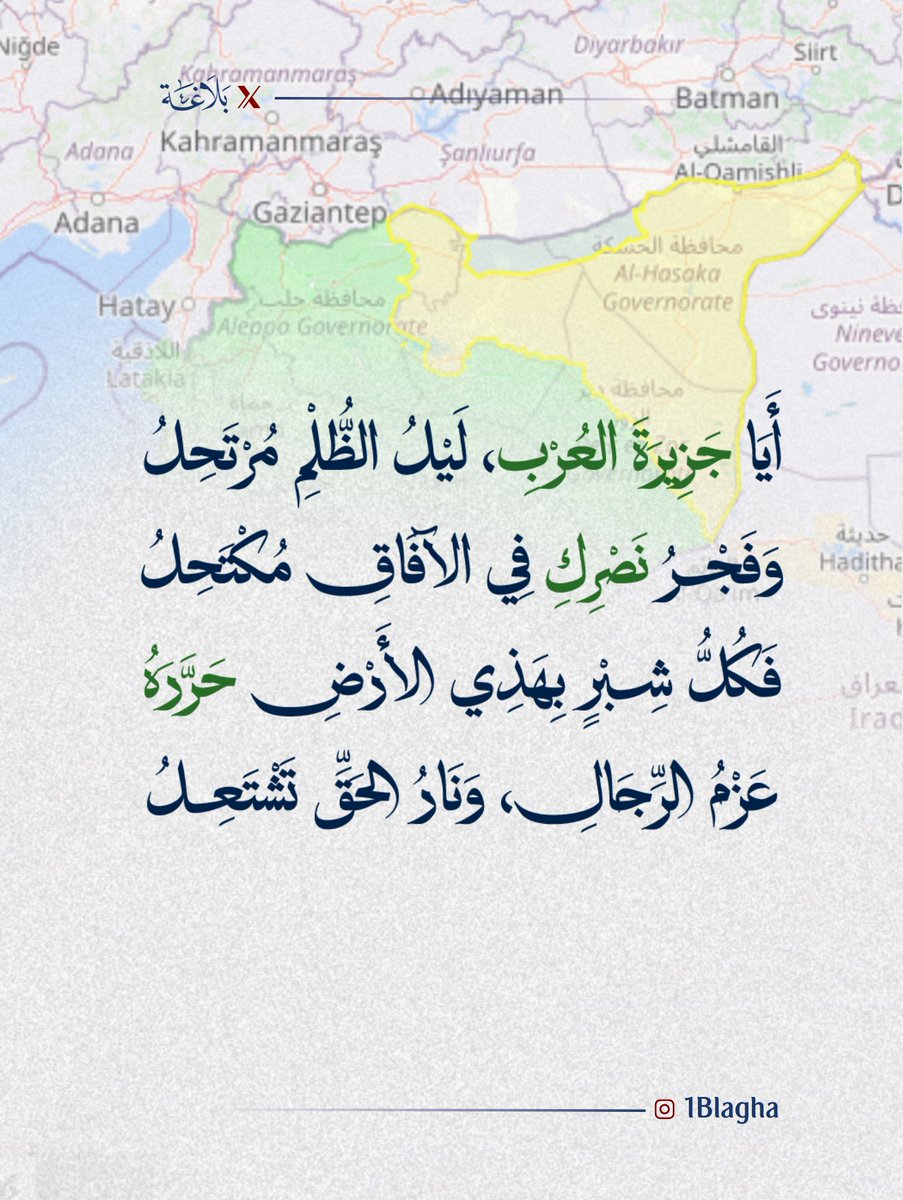 Niğde
Diyarbakır
Siirt
Kahramanmaraş
بَلَاغَة X
Adıyaman
Batman
Kahramanmaraş
Adana
Şanlıurfa
القامشلي
Al-Qamishli
Gaziantep
Adana
محافظة الحسكة
Al-Hasaka
Governorate
محافظة حلب
Aleppo Governorate
Hatay
نينوى
Nineve
Governo
اللاذقية
Latakia
حماة
محافظة دير
أَيَا جَزِيرَةَ العُرْبِ، لَيْلُ الظُّلْمِ مُرْتَحِلُ
حديثة
Haditha
وَفَجْرُ نَصْرِكِ فِي الآفَاقِ مُكْتَحِلُ
فَكُلُّ شِبْرٍ بِهَذِي الأَرْضِ حَرَّرَهُ
Iraq
عَزْمُ الرِّجَالِ، وَنَارُ الحَقِّ تَشْتَعِلُ
1Blagha